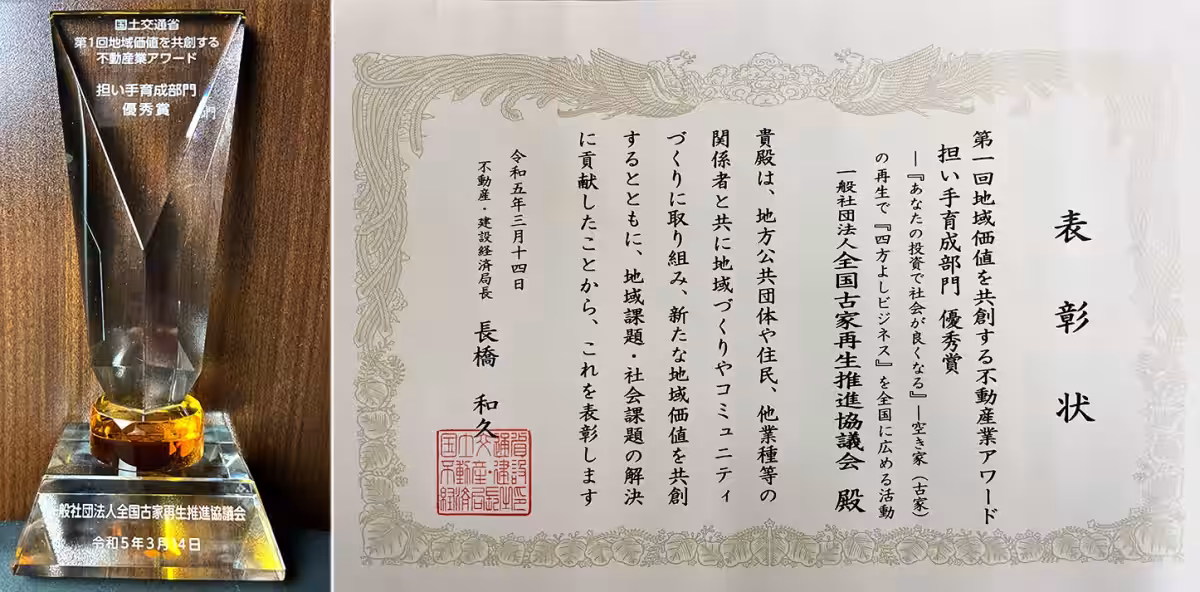 国土交通省
第1回地域価値を共創する
不動産業アワード
担い手育成部門
優秀賞
一般社団法人全国古家再生推進協議会
令和5年3月14日
表彰状
第一回地域価値を共創する不動産業アワード
担い手育成部門 優秀賞
―『あなたの投資で社会が良くなる』―空き家（古家）
の再生で『四方よしビジネス』を全国に広める活動
一般社団法人全国古家再生推進協議会 殿
貴殿は、地方公共団体や住民、他業種等の
関係者と共に地域づくりやコミュニティ
づくりに取り組み、新たな地域価値を共創
するとともに、地域課題・社会課題の解決
に貢献したことから、これを表彰します
令和五年三月十四日
不動産・建設経済局長 長橋 和久
国土交通省
不動産・建設
経済局長之印